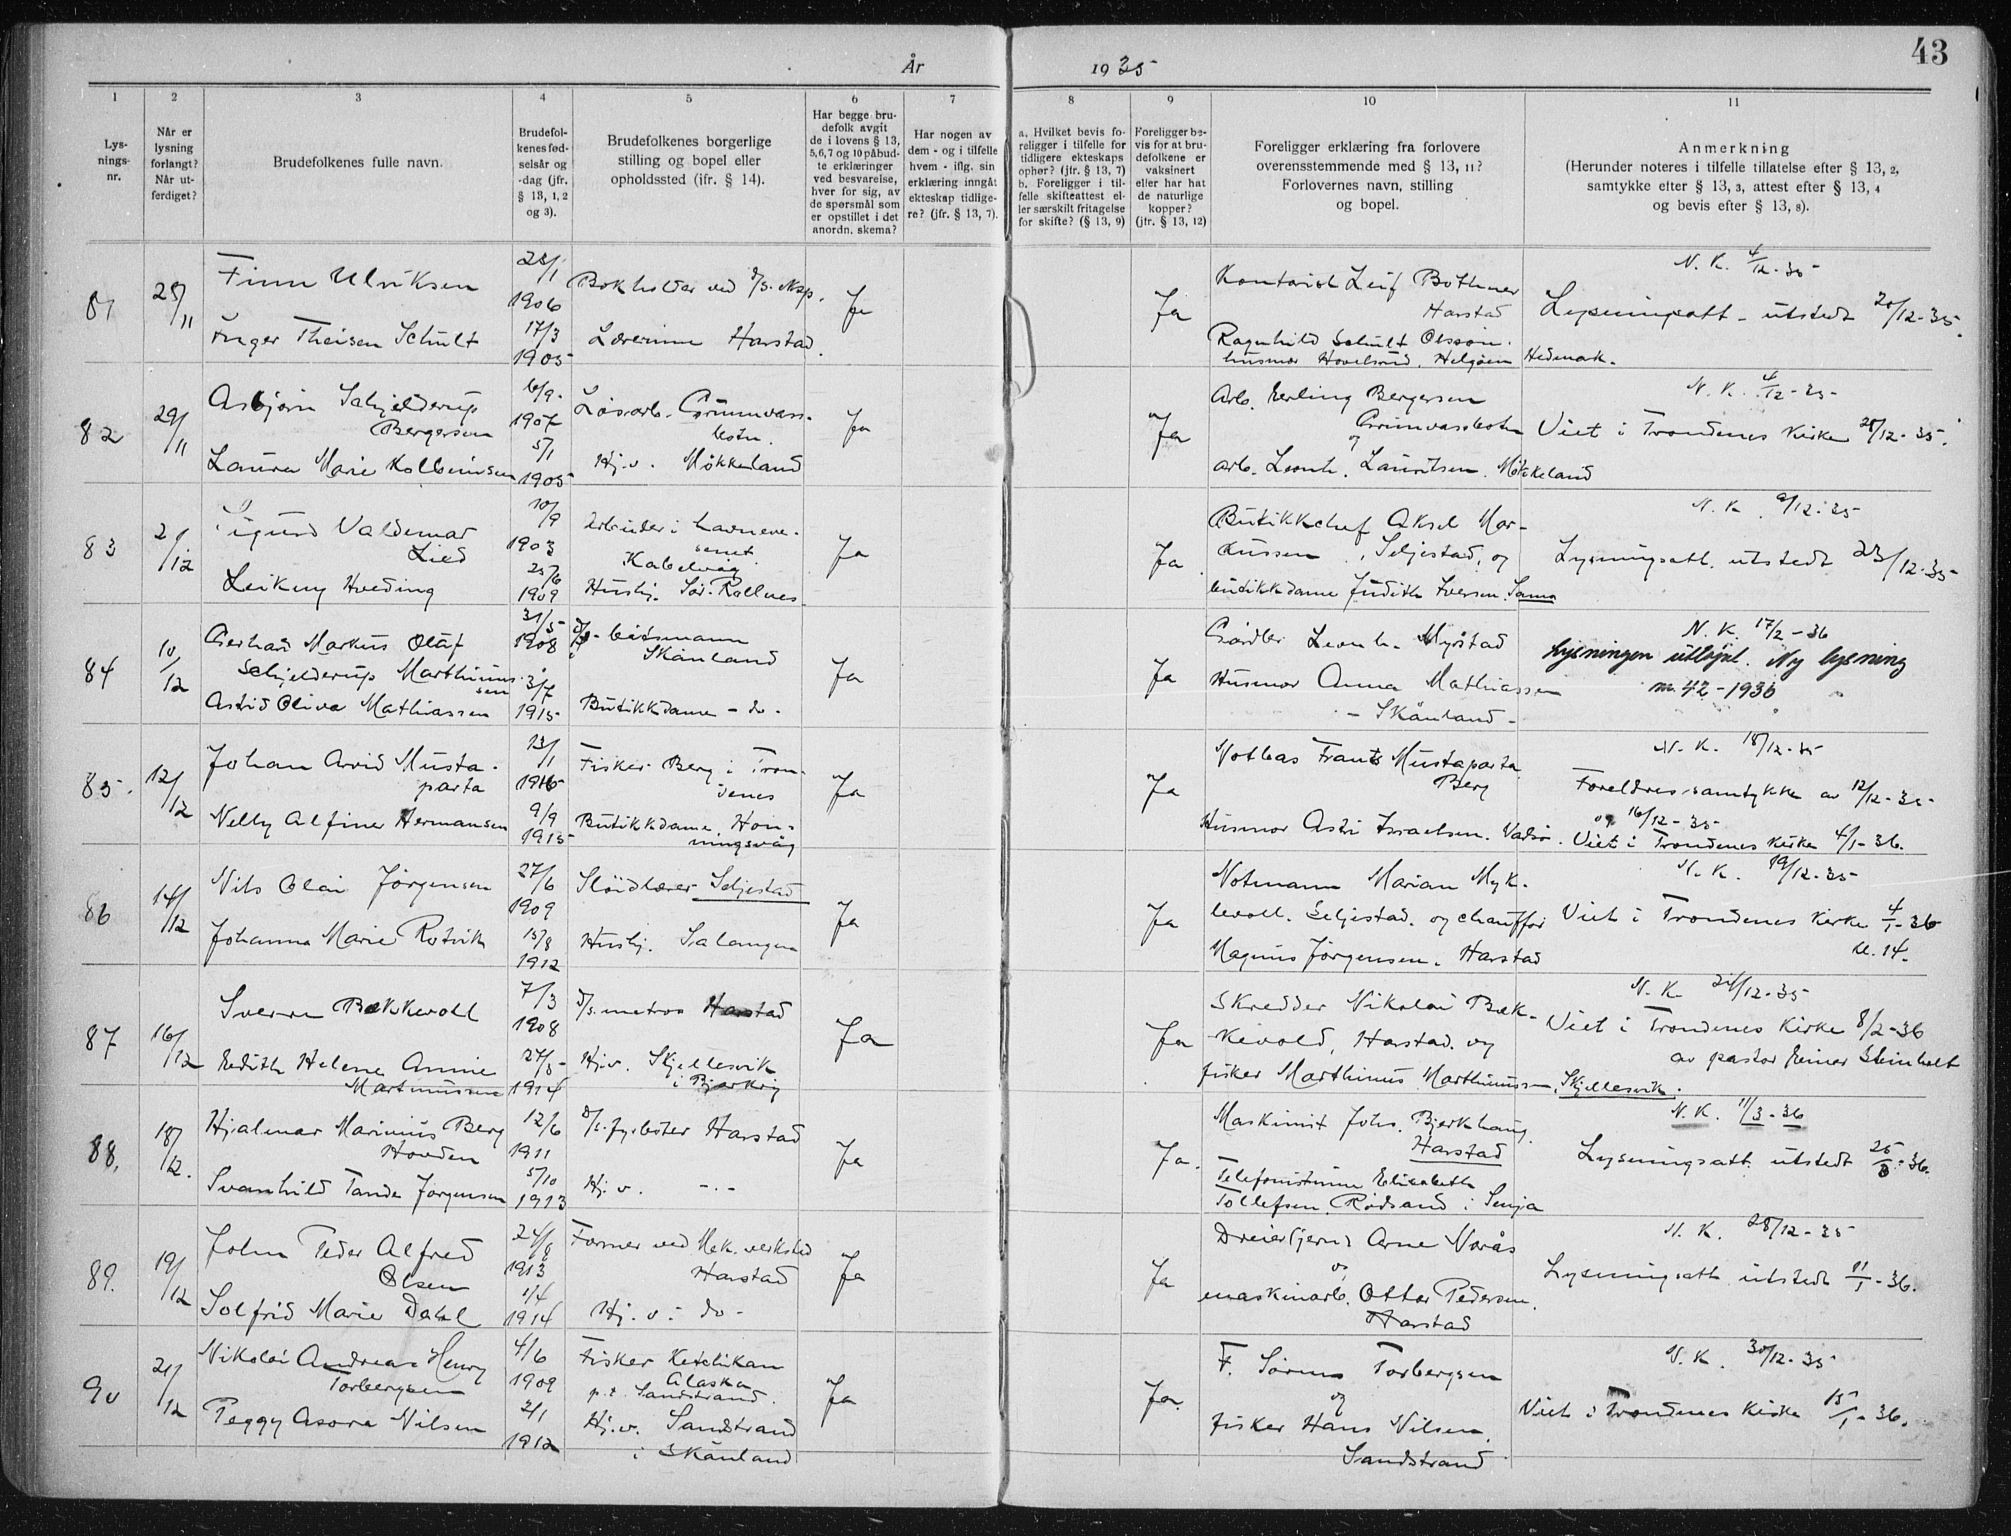 43
År 1935
1 2 3 4 5 6 7 8 9 10 11
Lys-
nings-
nr.
Når er
lysning
forlangt?
Når ut-
ferdiget?
Brudefolkenes fulle navn.
Brudefol-
kenes fød-
selsår og
-dag (jfr.
§ 13, 1, 2
og 3).
Brudefolkenes borgerlige
stilling og bopel eller
opholdssted (jfr. § 14).
Har begge bru-
defolk avgit
de i lovens § 13,
5,6,7 og 10 påbud-
te erklæringer
ved besvarelse,
hver for sig, av
de spørsmål som
er opstillet i det
anordn. skema?
Har nogen av
dem - og i tilfelle
hvem - iflg. sin
erklæring inngåt
ekteskap tidlige-
re? (jfr. § 13, 7).
a. Hvilket bevis fo-
religger i tilfelle for
tidligere ekteskaps
ophør? (jfr. § 13, 7)
b. Foreligger i til-
felle skifteattest el-
ler særskilt fritagelse
for skifte? (§ 13, 9)
Foreligger be-
vis for at bru-
defolkene er
vaksinert
eller har hat
de naturlige
kopper?
(jfr. § 13, 12)
Foreligger erklæring fra forlovere
overensstemmende med § 13, 11?
Forlovernes navn, stilling
og bopel.
Anmerkning
(Herunder noteres i tilfelle tillatelse efter § 13, 2,
samtykke efter § 13, 3, attest efter § 13, 4
og bevis efter § 13, 8).
81 28/11 Finn Ulriksen 28/1 1906 Bokholder ved D/S. Ja
Inger Theisen Schult 17/3 1905 Lærerinne Harstad.
Ja Kontorist Leif Bothner
Harstad
Ragnhild Schult Olsson.
husmor Hovelsrud, Helgøen Hedmark.
N. K. 4/12-35
Lysningsatt. utstedt 20/12-35.
82 29/11 Asbjørn Schjelderup
Bergersen 6/9. 1907 Løsarb. Grunnvass-
botn. Ja
Laura Marie Kolbeinsen 5/1 1905 Hj.v. Møkkeland
Ja Arb. Erling Bergersen
Grunnvassbotn
og
arb. Leonh. Lauritsen. Møkkeland
N. K. 4/12-35
Viet i Trondenes Kirke 28/12-35.
83 2/12 Sigurd Valdemar
Lied 10/9 1903 Arbeider i havneve-
senet
Kabelvåg Ja
Leikny Hveding 25/6 1909 Hushj. Sør-Rollnes
Ja Butikkchef Aksel Mar-
kussen, Seljestad, og
butikkdame Judith Iversen. Sama
N. K. 9/12-35
Lysningsatt. utstedt 23/12-35
84 10/12 Gerhard Markus Olaf
Schjelderup Marthinus-
sen 31/5 1908 båtsmann
Skånland Ja
Astrid Oliva Mathiassen 3/7 1915 Butikkdame - do -
Ja Gårdbr. Leonh. Myrstad
Husmor Anna Mathiassen
- Skånland -
N. K. 17/2-36
Lysningen utløpt. Ny lysning
nr. 42-1936
85. 12/12 Johan Arvid Musta-
parta 13/1 1915 Fisker Berg i Tron-
denes Ja
Nelly Alfine Hermansen 9/9 1915 Butikkdame. Hon-
ningsvåg
Ja Notbas Frants Mustaparta
Berg
Husmor Astri Israelsen. Vadsø.
N. K. 18/12-35
Foreldres samtykke av 12/12-35
og 16/12-35
Viet i Trondenes Kirke 4/1-36.
86 14/12 Nils Olai Jørgensen 27/6 1909 Sløidlærer Seljestad Ja
Johanna Marie Rotvik 15/8 1912 Hushj. Salangen
Ja Notmann Marian Myk-
levoll. Seljestad. og chauffør
Magnus Jørgensen. Harstad
N. K. 19/12-35
Viet i Trondenes Kirke 4/1-36
kl. 14.
87 16/12 Sverre Bækkevold 7/3 1908 D/s. matros Harstad Ja
Edith Helene Annie
Martinussen 27/5- 1914 Hj.v. Skjellesvik
i Bjarkøy
Ja Skredder Nikolai Bæk-
kevold, Harstad. og
fisker Marthinus Marthinussen, Skjellesvik.
N. K. 21/12-35
Viet i Trondenes Kirke 8/2-36
av pastor Einar Steinholt
88. 18/12. Hjalmar Marinius Berg
Hovden 12/6 1911 D/s. fyrbøter Harstad Ja
Svanhild Tande Jørgensen 5/10 1913 Hj.v. -.-
Ja. Maskinist Johs. Bjerkhaug.
Harstad
Telefonistinne Elisabeth
Tollefsen. Rødsand i Senja
N. K. 11/3-36
Lysningsatt. utstedt 25/3-36.
89. 19/12 John Peder Alfred
Olsen 24/8 1913 Former ved Mek. verksted
Harstad Ja
Solfrid Marie Dahl 1/4 1914 Hj.v. - do -
Ja Dreier (jern) Arne Norås
og
maskinarb. Ottar Pedersen.
Harstad
N. K. 28/12-35
Lysningsatt. utstedt 11/1-36.
90 21/12 Nikolai Andreas Henry
Torbergsen 4/6 1909 Fisker Ketchikan
Alaska
p.t. Sandstrand. Ja
Peggy Asora Nilsen 2/1 1912 Hj.v. Sandstrand
i Skånland
Ja. F. Søren Torbergsen
og
fisker Hans Nilsen.
Sandstrand
N. K. 30/12-35
Viet i Trondenes Kirke 15/1-36.